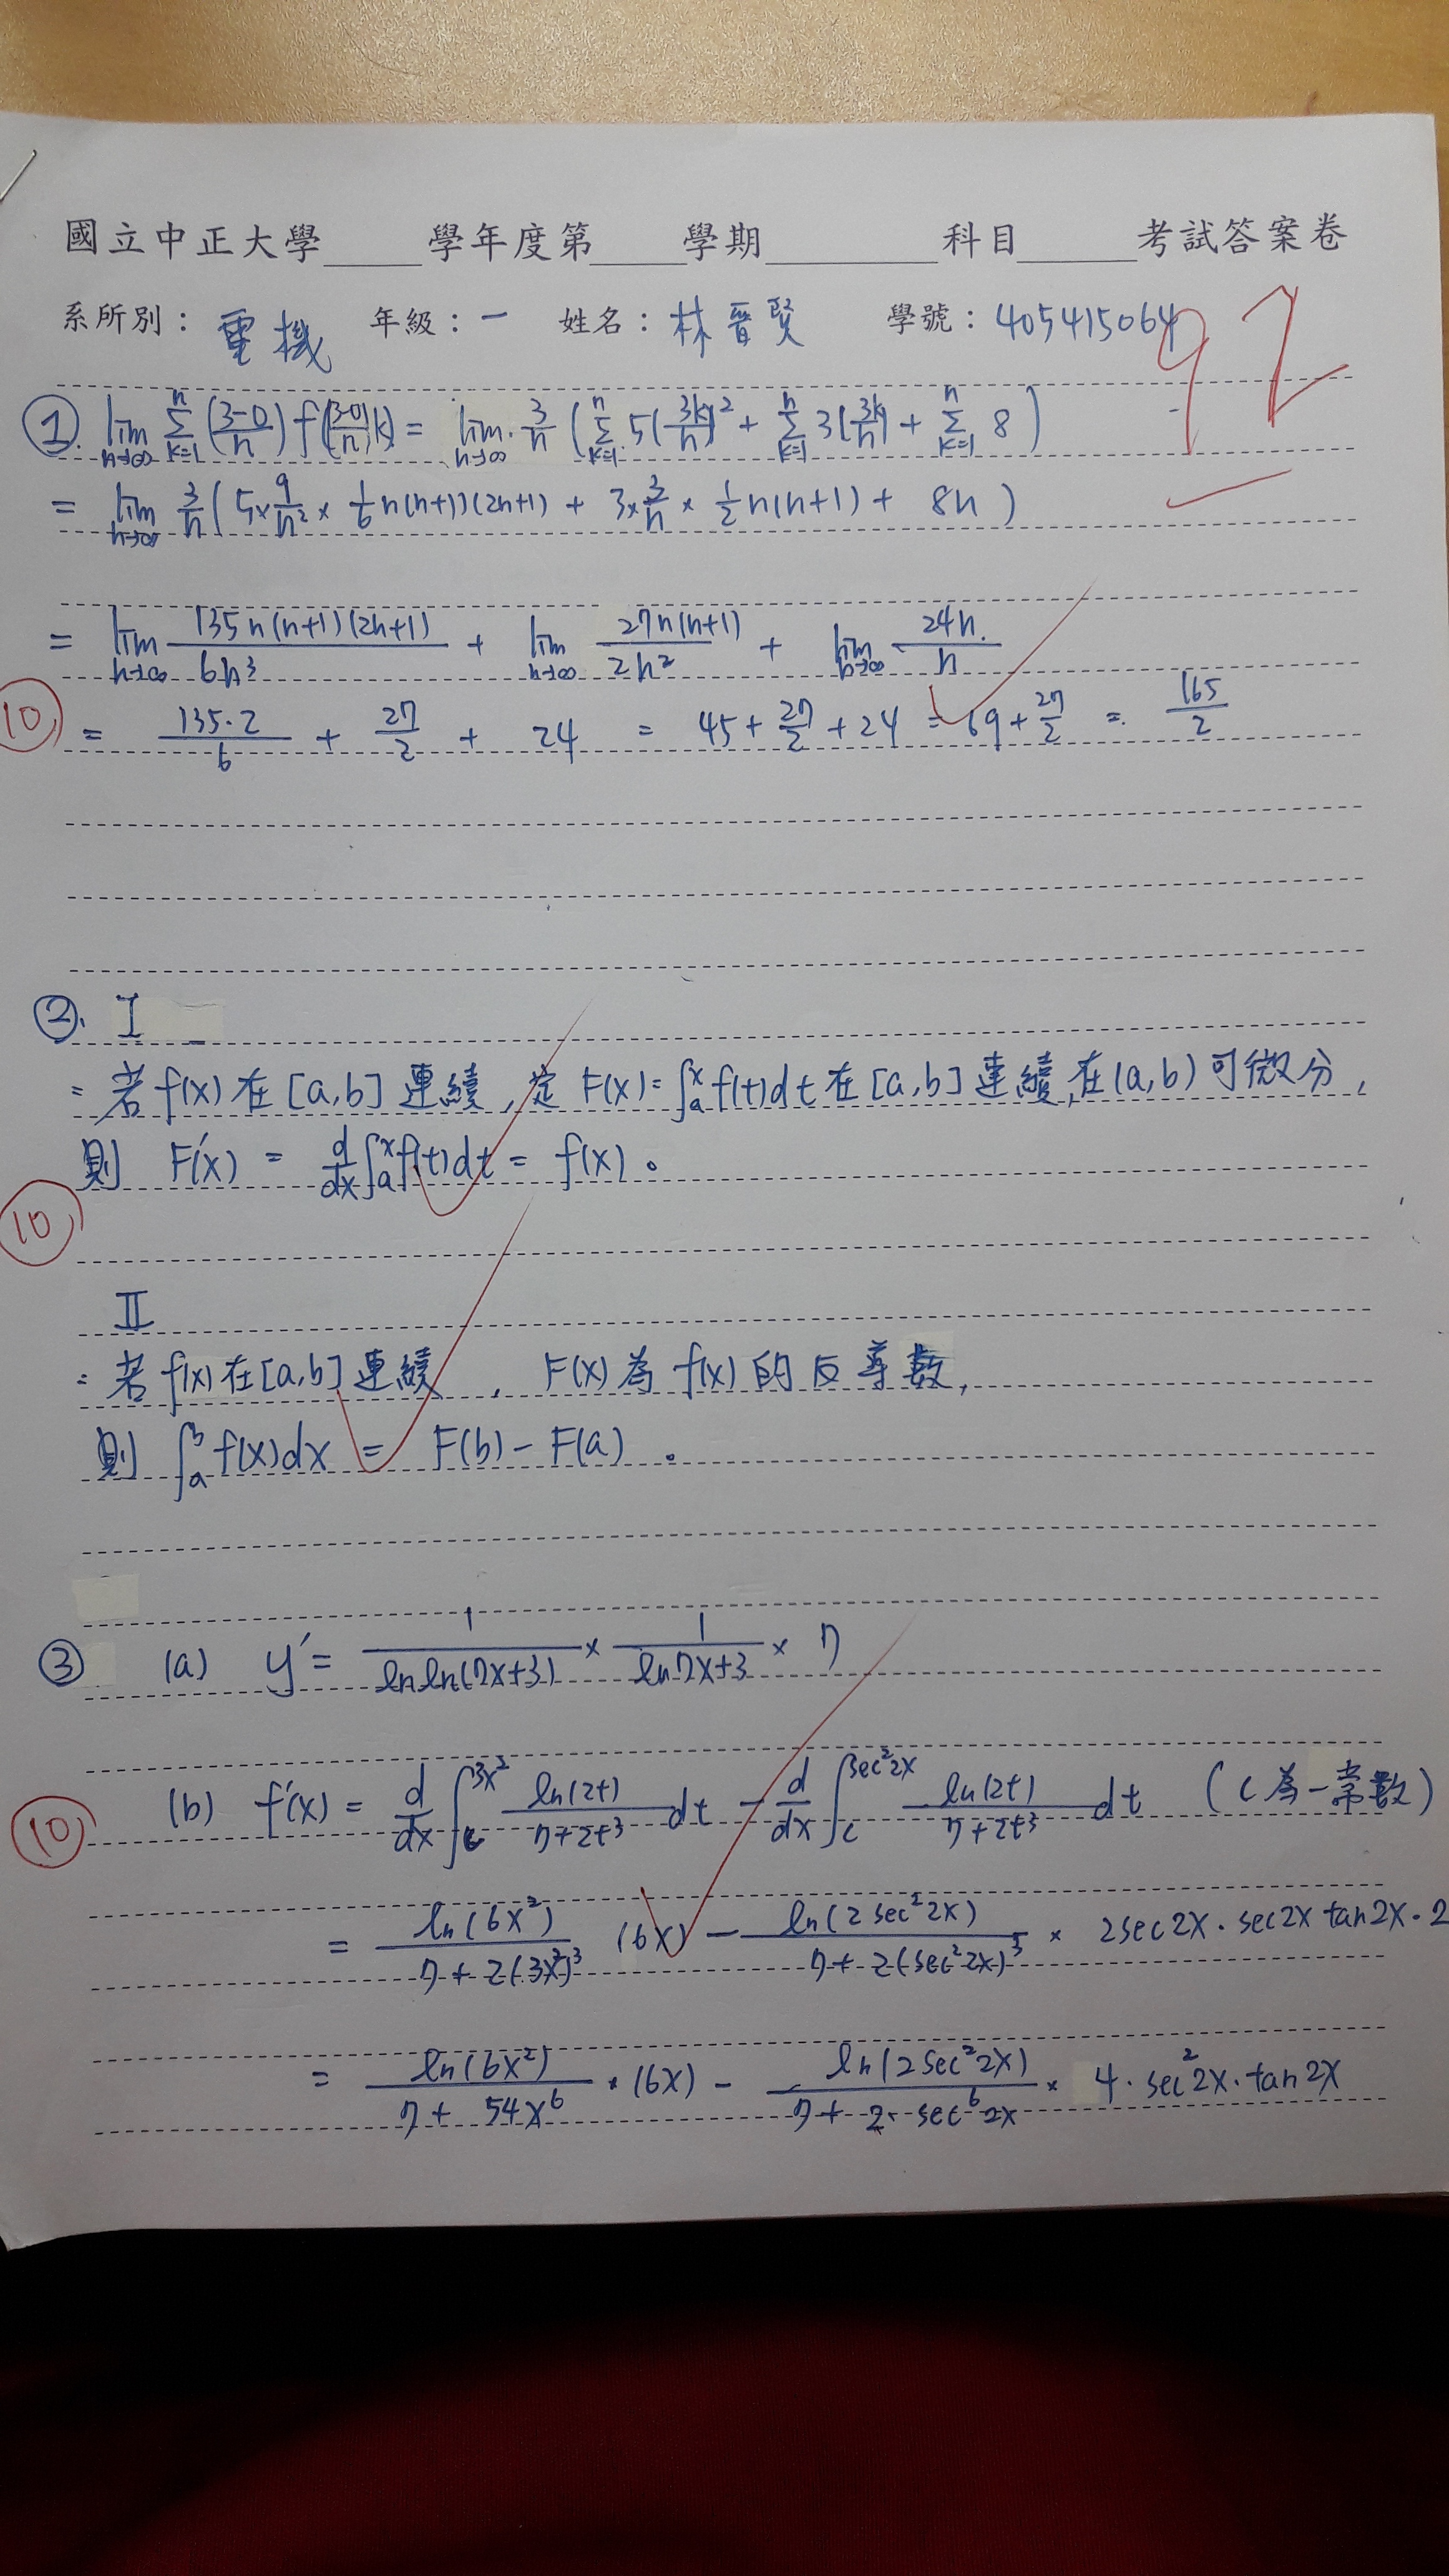 國立中正大學____學年度第____學期________科目_____考試答案卷
系所別：電機 年級：一 姓名：林晉賢 學號：405415064
92
① lim n→∞ Σ k=1 n (3-0/n) f((3-0/n)k) = lim n→∞ 3/n (Σ k=1 n 5(3k/n)² + Σ k=1 n 3(3k/n) + Σ k=1 n 8)
= lim n→∞ 3/n (5×9/n² × 1/6 n(n+1)(2n+1) + 3×3/n × 1/2 n(n+1) + 8n)
= lim n→∞ 135n(n+1)(2n+1)/6n³ + lim n→∞ 27n(n+1)/2n² + lim n→∞ 24n/n
10 = 135·2/6 + 27/2 + 24 = 45 + 27/2 + 24 = 69 + 27/2 = 165/2
②. I
: 若 f(x) 在 [a,b] 連續, 定 F(x) = ∫ₐˣ f(t)dt 在 [a,b] 連續, 在 (a,b) 可微分,
則 F'(x) = d/dx ∫ₐˣ f(t)dt = f(x)。
10
II
: 若 f(x) 在 [a,b] 連續, F(x) 為 f(x) 的反導數,
則 ∫ₐᵇ f(x)dx = F(b) - F(a)。
③ (a) y' = 1/lnln(7x+3) × 1/ln7x+3 × 7
10 (b) f'(x) = d/dx ∫_c^{3x²} ln(2t)/7+2t³ dt - d/dx ∫_c^{sec²2x} ln(2t)/7+2t³ dt (c 為一常數)
= ln(6x²)/7+2(3x²)³ (6x) - ln(2sec²2x)/7+2(sec²2x)³ × 2sec2x·sec2x tan2x·2
= ln(6x²)/7+54x⁶ ·(6x) - ln(2sec²2x)/7+2·sec⁶2x × 4·sec²2x·tan2x